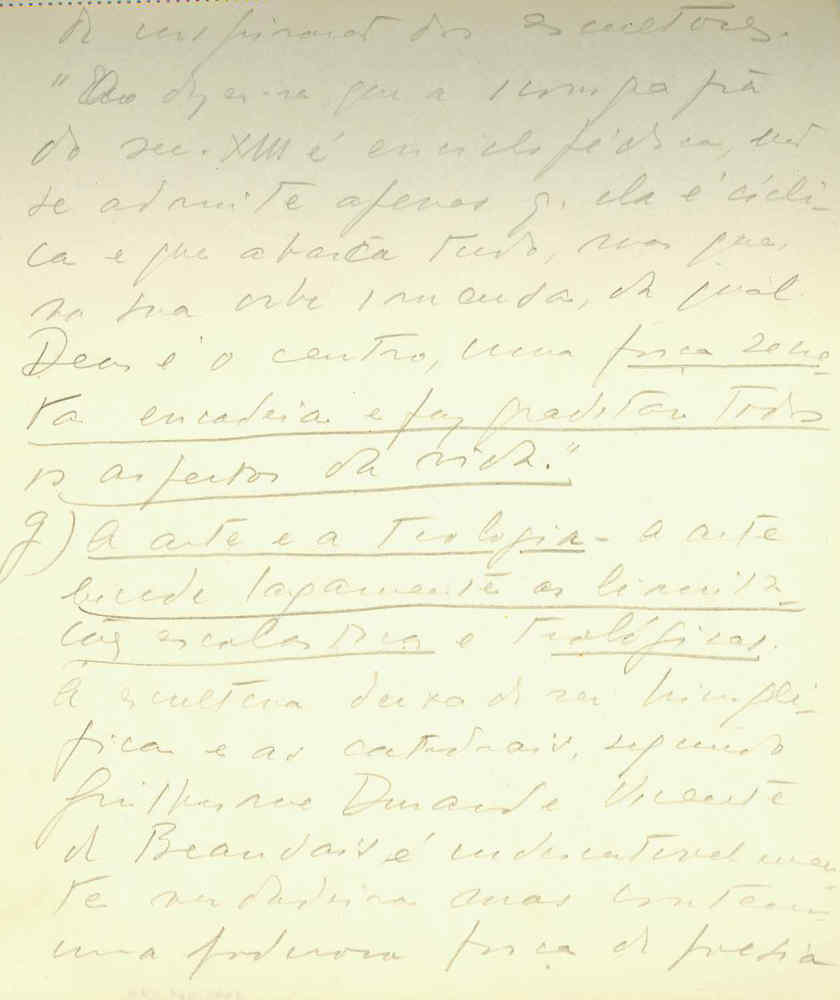 de inspiração dos escultores.
"Ao dizer-se que a iconografia
do sec. XIII é enciclopédica, não
se admite apenas q. ela é cícli-
ca e que abarca tudo, mas que,
na sua orbe imensa, da qual
Deus é o centro, uma força secre-
ta encadeia e faz gravitar todos
os aspectos da vida."
g) A arte e a teologia - A arte
excede largamente as limita-
ções escolásticas e teológicas.
A escultura deixa de ser
e as catedrais, segundo
Guilherme Durand e Vicente
de Beauvais é indiscutivelmen-
te verdadeira mas contem
uma poderosa força de poesia